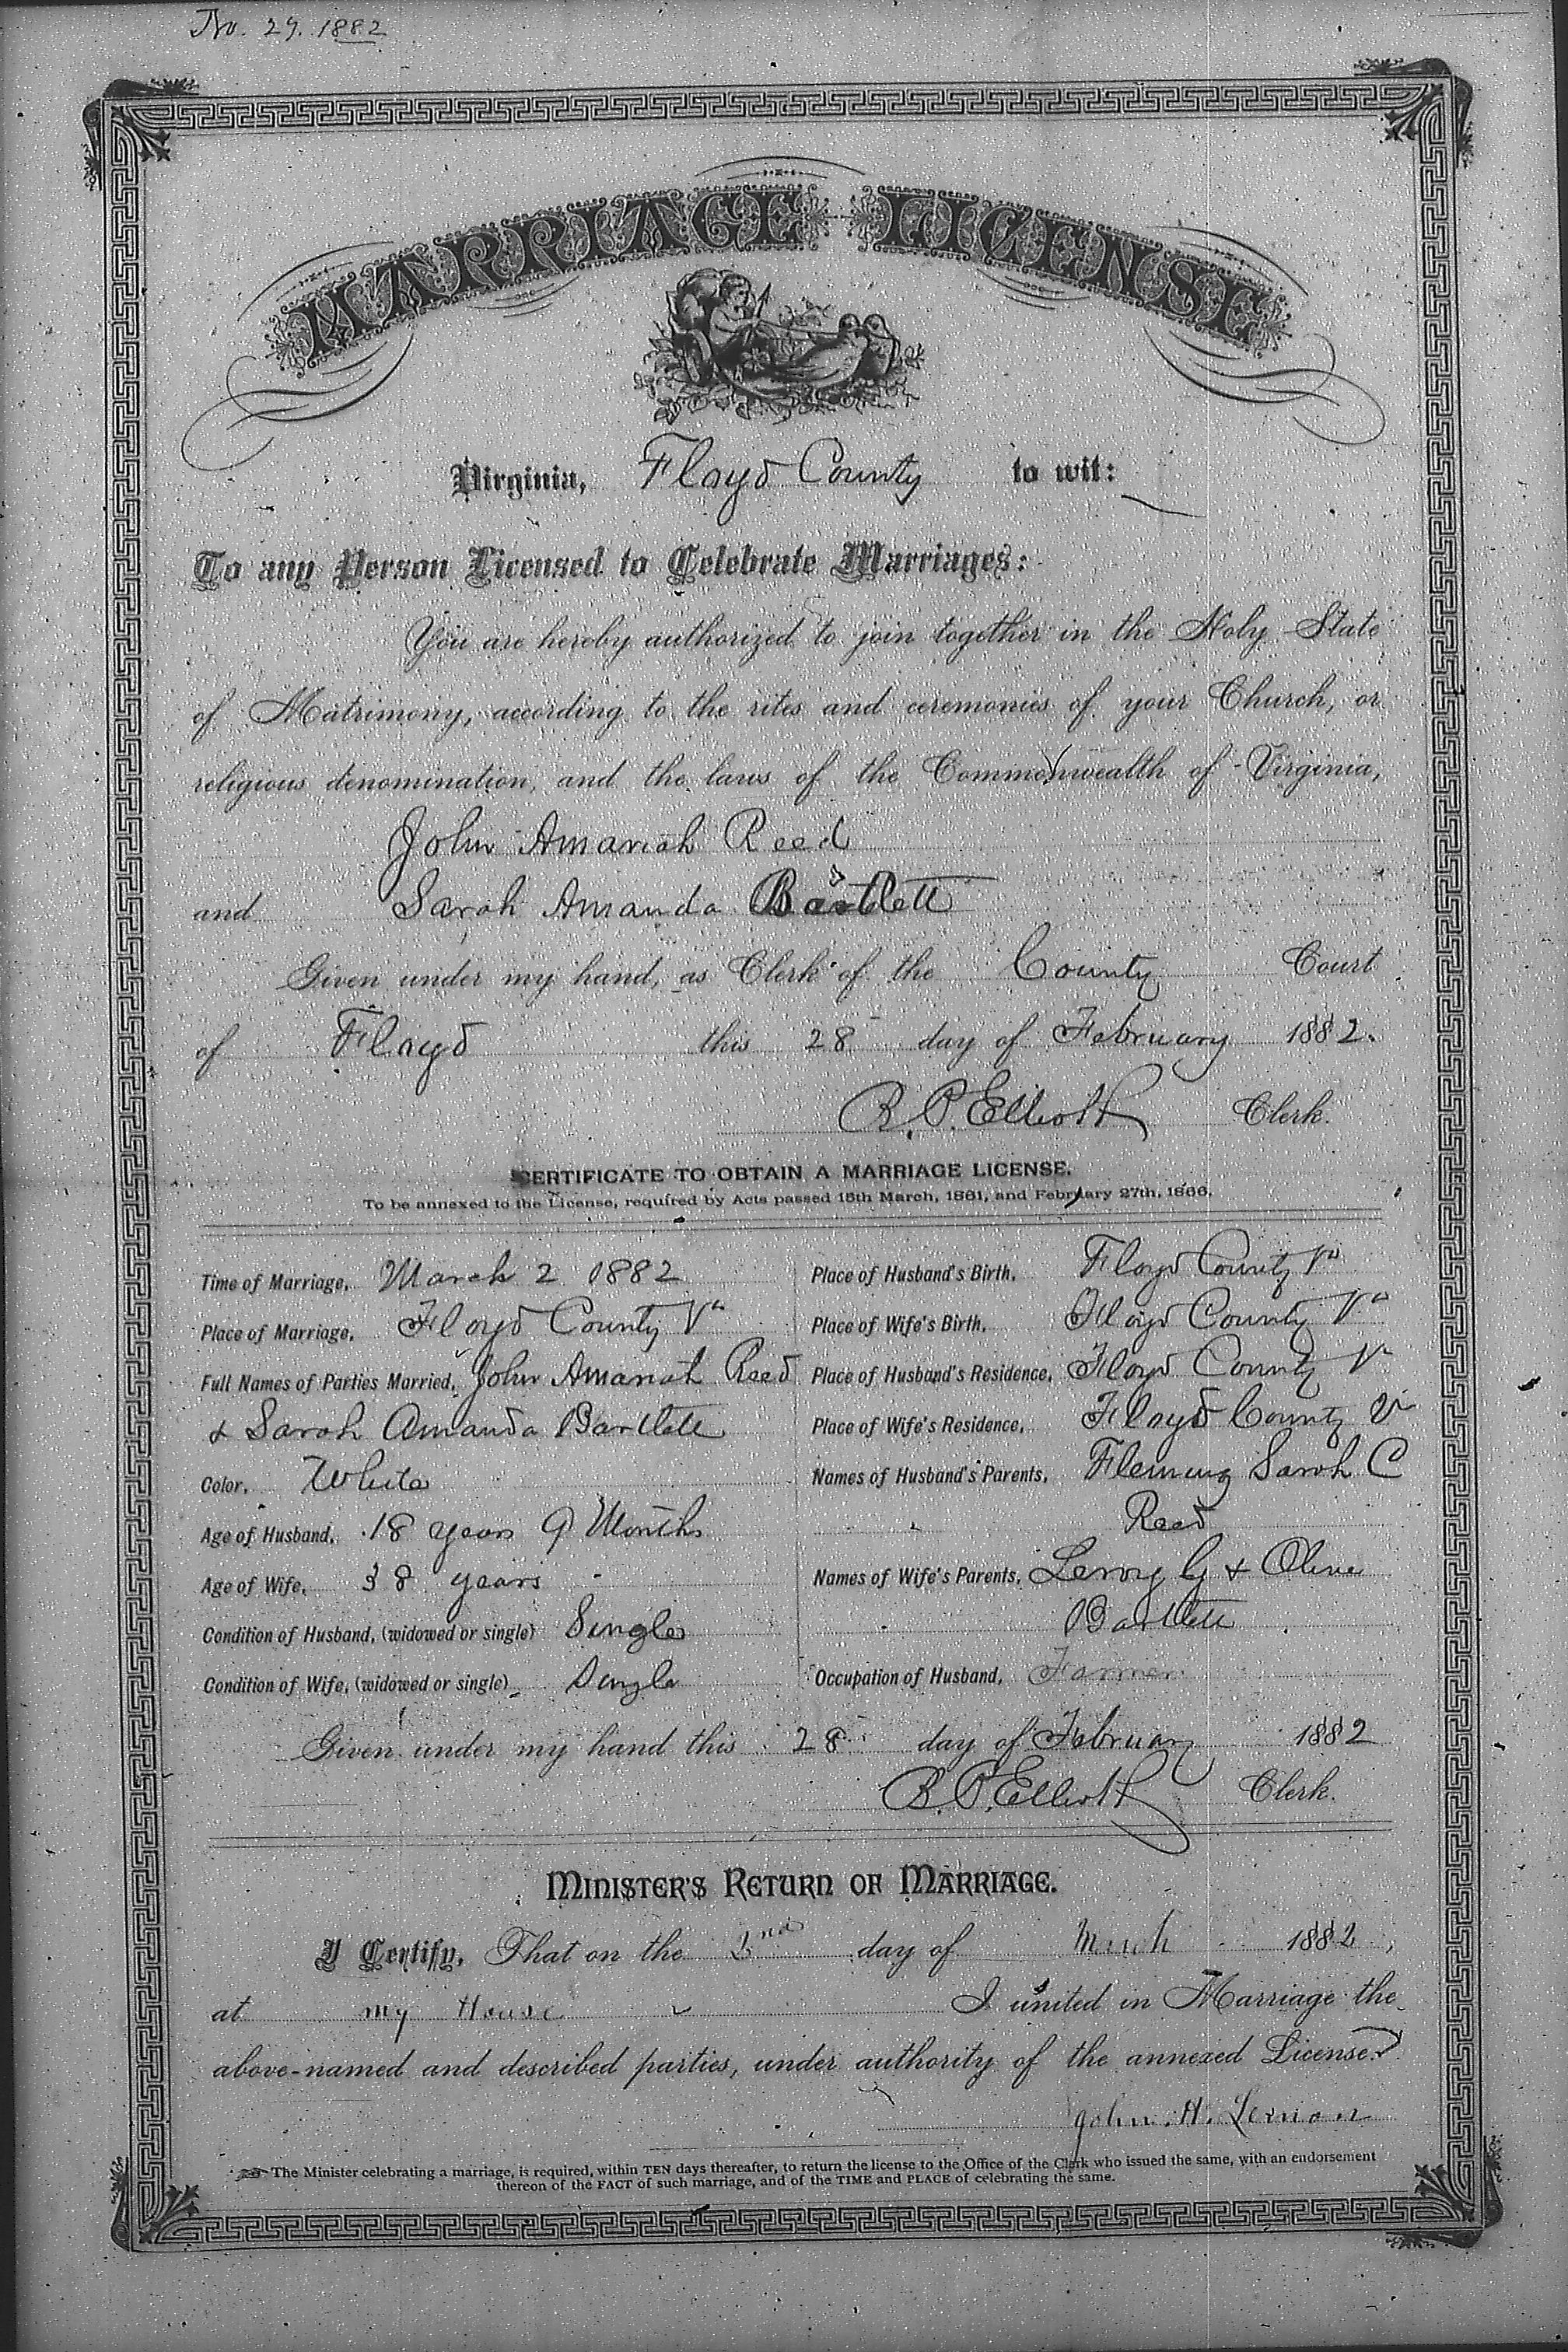 No. 29. 1882
MARRIAGE LICENSE
Virginia, Floyd County to wit:
To any Person Licensed to Celebrate Marriages:
You are hereby authorized to join together in the Holy State
of Matrimony, according to the rites and ceremonies of your Church, or
religious denomination, and the laws of the Commonwealth of Virginia,
John Amariah Reed
and Sarah Amanda Bartlett
Given under my hand, as Clerk of the County Court
of Floyd this 28 day of February 1882.
R. P. Elliott Clerk.
CERTIFICATE TO OBTAIN A MARRIAGE LICENSE.
To be annexed to the License, required by Acts passed 15th March, 1861, and February 27th, 1866.
Time of Marriage, March 2 1882
Place of Marriage, Floyd County Va
Full Names of Parties Married, John Amariah Reed
& Sarah Amanda Bartlett
Color, White
Age of Husband, 18 years 9 Months
Age of Wife, 38 years
Condition of Husband, (widowed or single) Single
Condition of Wife, (widowed or single) Single
Place of Husband's Birth, Floyd County Va
Place of Wife's Birth, Floyd County Va
Place of Husband's Residence, Floyd County Va
Place of Wife's Residence, Floyd County Va
Names of Husband's Parents, Fleming Sarah C
Reed
Names of Wife's Parents, Leroy G & Olive
Bartlett
Occupation of Husband, Farmer
Given under my hand this 28 day of February 1882
R. P. Elliott Clerk.
MINISTER'S RETURN OF MARRIAGE.
I Certify, That on the 2nd day of March 1882,
at my House I united in Marriage the
above-named and described parties, under authority of the annexed License.
John. H. Lemon
The Minister celebrating a marriage, is required, within TEN days thereafter, to return the license to the Office of the Clerk who issued the same, with an endorsement
thereon of the FACT of such marriage, and of the TIME and PLACE of celebrating the same.